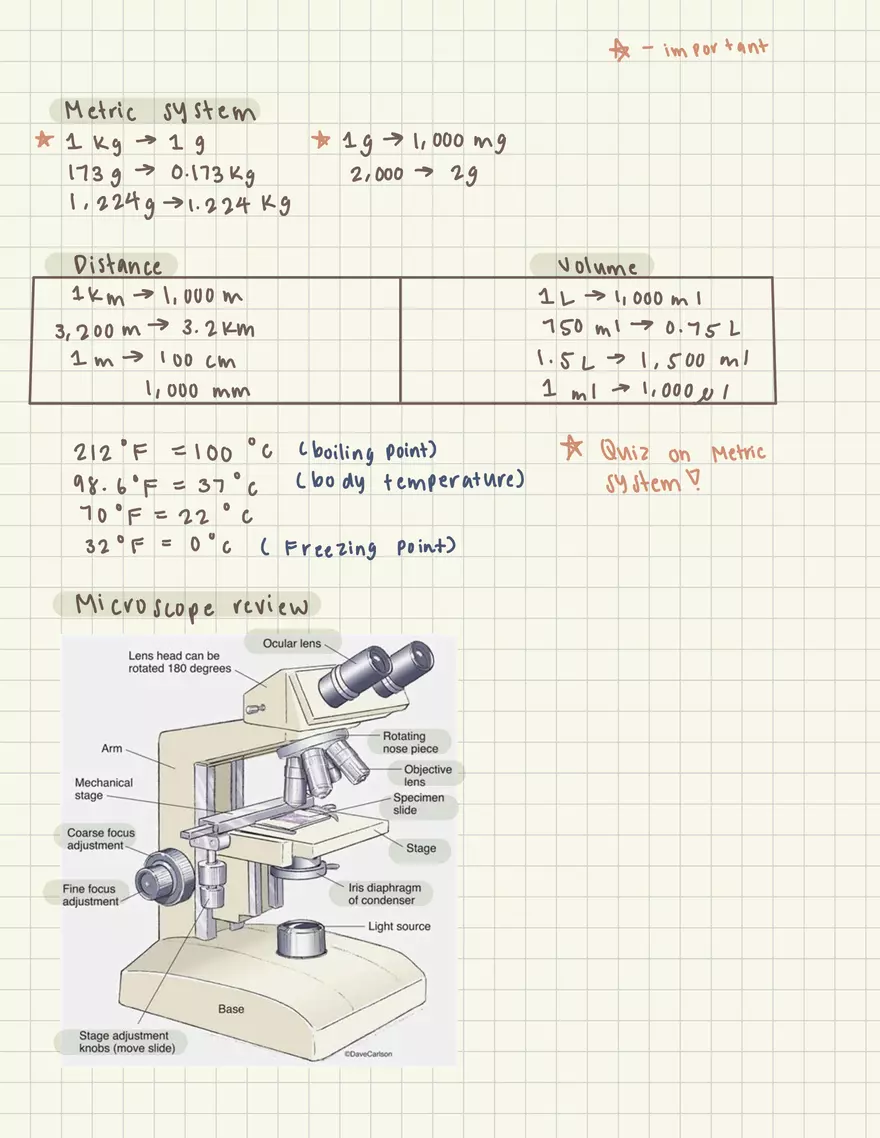 ☆ - important
Metric system
★ 1 Kg → 1 g
173 g → 0.173 Kg
1,224g → 1.224 Kg
★ 1g → 1,000 mg
2,000 → 2g
Distance
1 Km → 1,000 m
3,200 m → 3.2 Km
1 m → 100 cm
1,000 mm
Volume
1 L → 1,000 ml
750 ml → 0.75 L
1.5 L → 1,500 ml
1 ml → 1,000 µl
212°F = 100 °C (boiling point)
98.6°F = 37°C (body temperature)
70°F = 22 °C
32°F = 0°C (Freezing point)
☆ Quiz on Metric
system!
Microscope review
Ocular lens
Lens head can be
rotated 180 degrees
Rotating
nose piece
Arm
Objective
lens
Mechanical
stage
Specimen
slide
Coarse focus
adjustment
Stage
Fine focus
adjustment
Iris diaphragm
of condenser
Light source
Base
Stage adjustment
knobs (move slide)
©DaveCarlson